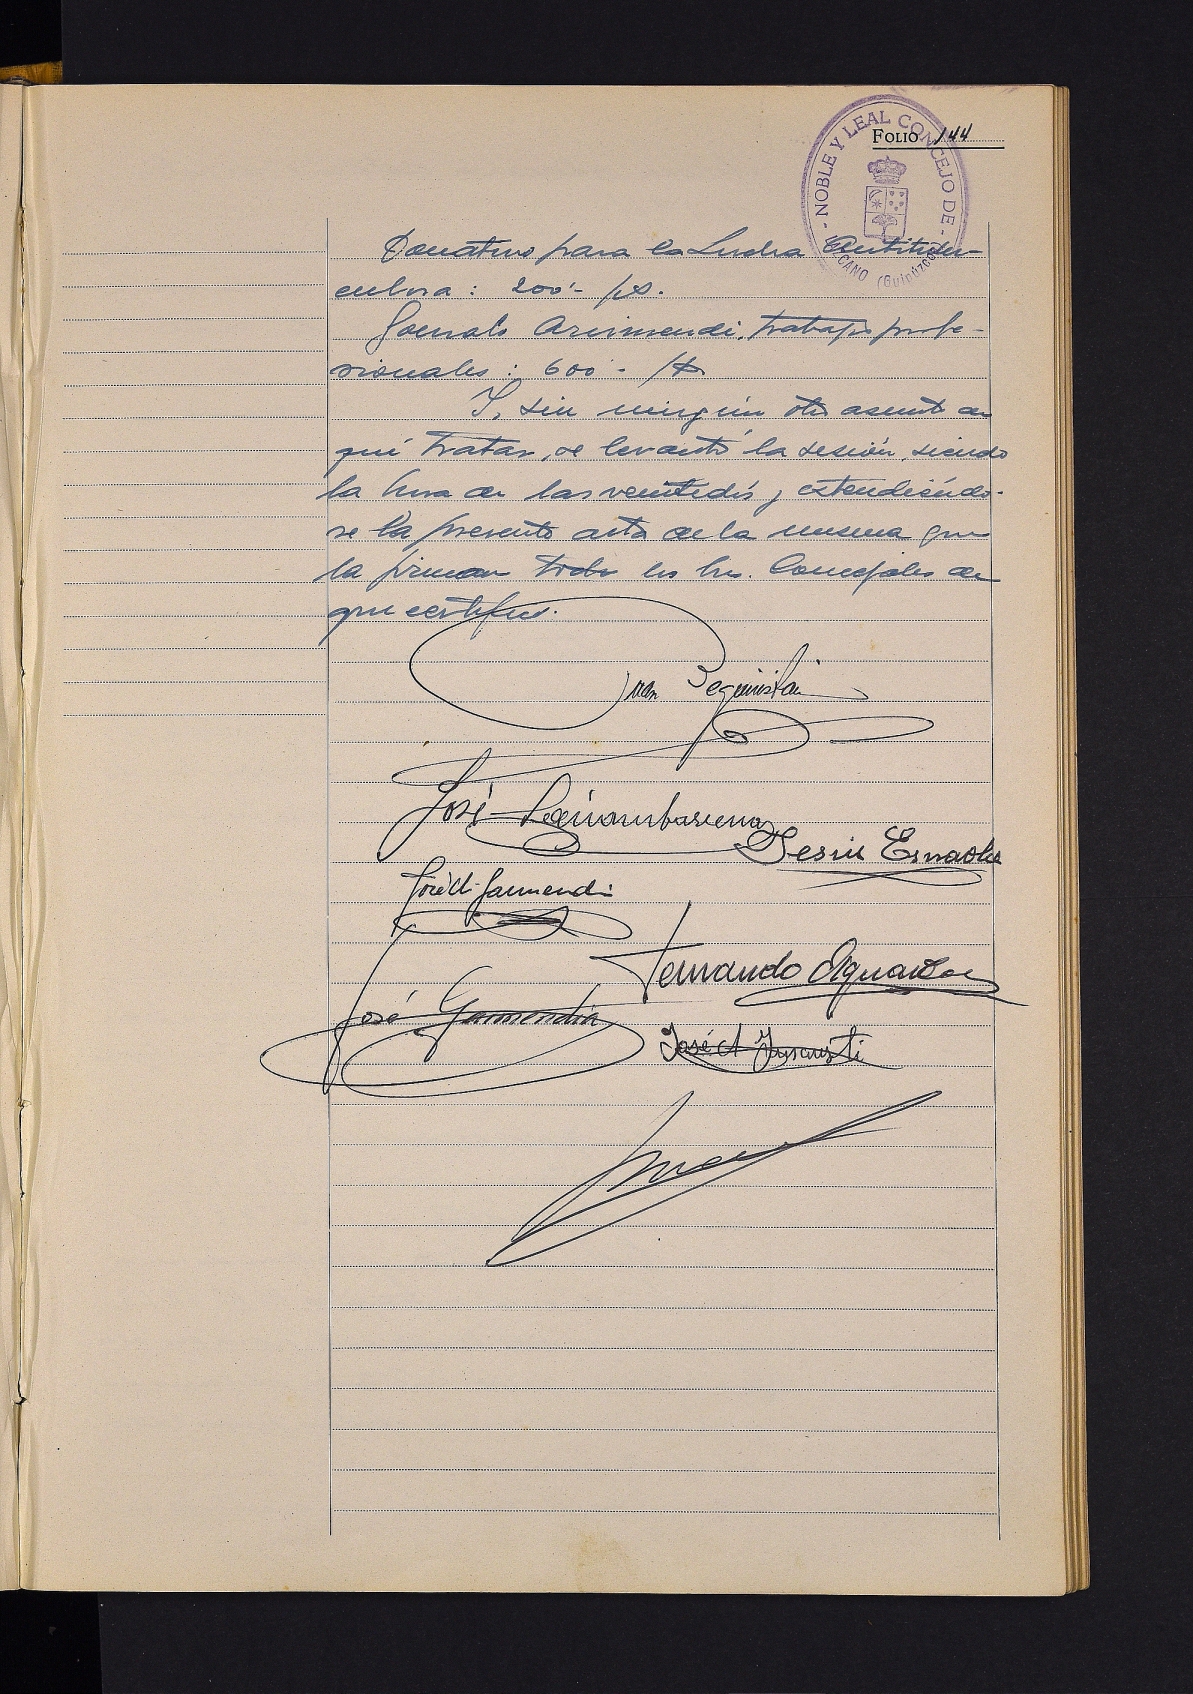 FOLIO 144
- NOBLE Y LEAL CONCEJO DE -
CANO (Guipúzcoa)
Donativo para la Lucha Antituber-
culosa: 200'- pts.
Gonzalo Arizmendi, trabajos profe-
sionales: 600'- pts
Y, sin ningún otro asunto de
qué tratar, se levantó la sesión, siendo
la hora de las veintidós y extendiéndo-
se la presente acta de la misma que
la firman todos los Srs. Concejales de
que certifico.
Juan Beguiristain
José
Jesús Esnaola
José A. Garmendia
Fernando
José Garmendia
José A